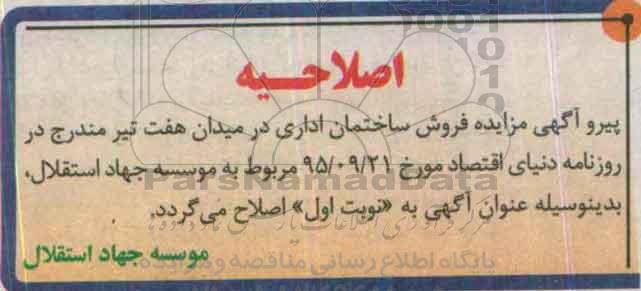 اصلاحـــیه
پیرو آگهی مزایده فروش ساختمان اداری در میدان هفت تیر مندرج در
روزنامه دنیای اقتصاد مورخ ۹۵/۰۹/۲۱ مربوط به موسسه جهاد استقلال،
بدینوسیله عنوان آگهی به «نوبت اول» اصلاح می‌گردد.
موسسه جهاد استقلال
ParsNamadData
پایگاه اطلاع رسانی مناقصه و مزایده